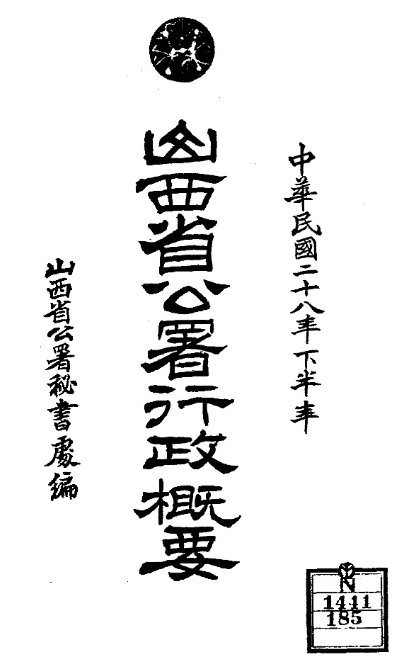 中華民國二十八年下半年
山西省公署行政概要
山西省公署秘書處編
N
1441
185